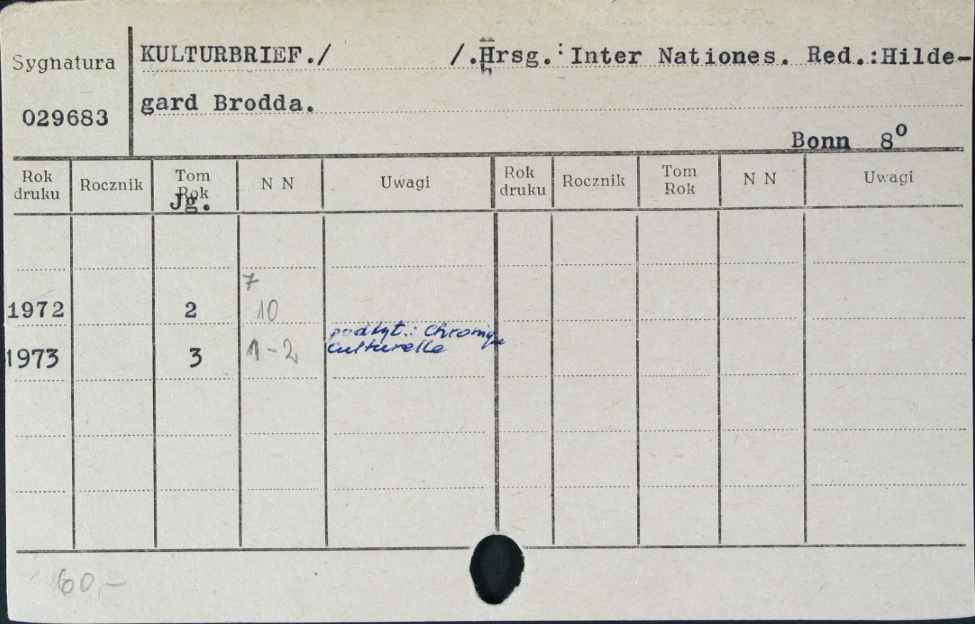 Sygnatura
029683
KULTURBRIEF./ /.Hrsg.:Inter Nationes. Red.:Hilde-
gard Brodda.
Bonn 8º
Rok druku Rocznik Tom Rok N N Uwagi Rok druku Rocznik Tom Rok N N Uwagi
Jg.
7
1972 2 10
podtyt.: Chronique
1973 3 1-2 Culturelle
60,-